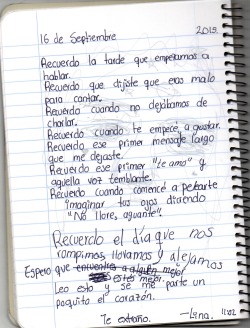 16 de Septiembre 2015.
Recuerdo la tarde que empezamos a
hablar.
Recuerdo que dijiste que eras malo
para cantar.
Recuerdo cuando no dejábamos de
charlar.
Recuerdo cuando te empecé a gustar.
Recuerdo ese primer mensaje largo
que me dejaste.
Recuerdo ese primer "te amo" y
aquella voz temblante.
Recuerdo cuando comencé a pensarte
imaginar tus ojos diciendo
"No llore, aguante".
Recuerdo el día que nos
rompimos, lloramos y alejamos
Espero que encuentres a alguien mejor
estés mejor.
Leo esto y se me parte un
poquito el corazón.
Te extraño. -Luna.